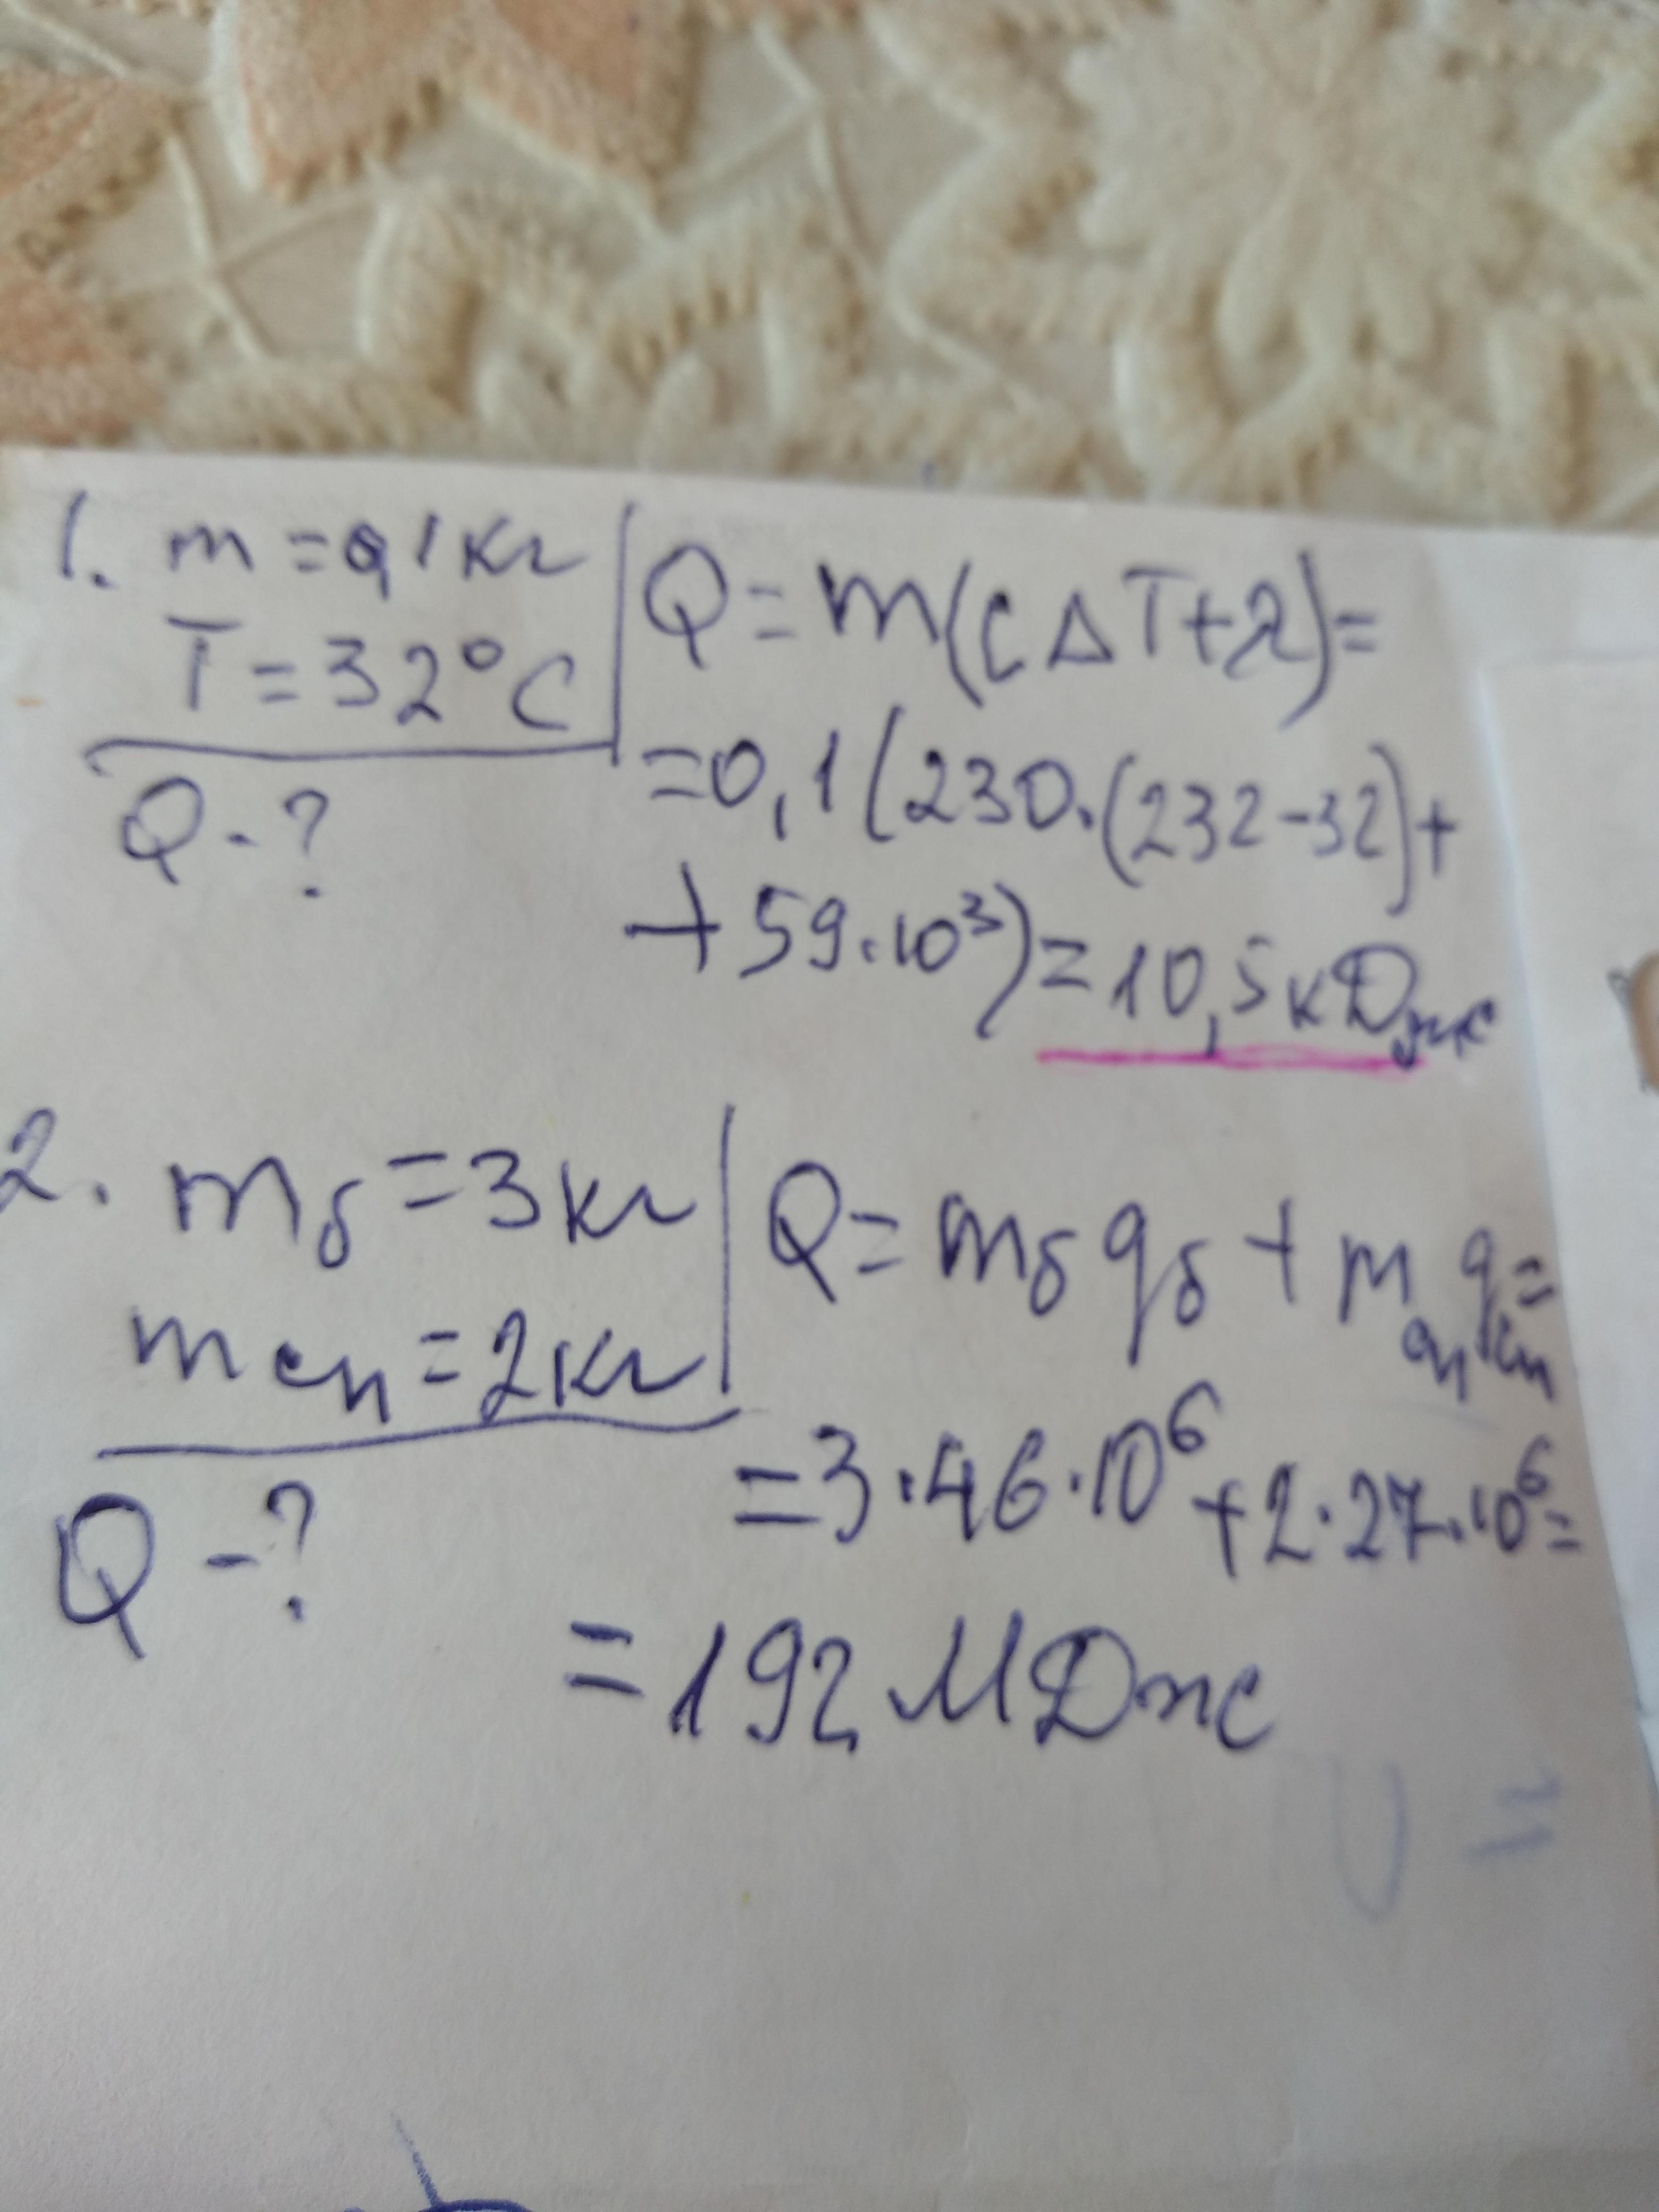 1. m = 0,1 кг
T = 32°C
Q - ?
Q = m(cΔT+λ) =
= 0,1(230·(232-32)+
+ 59·10³) = 10,5 кДж
2. mб = 3 кг
mсп = 2 кг
Q - ?
Q = mб qб + mсп qсп =
= 3·46·10⁶ + 2·27·10⁶ =
= 192 МДж
U =